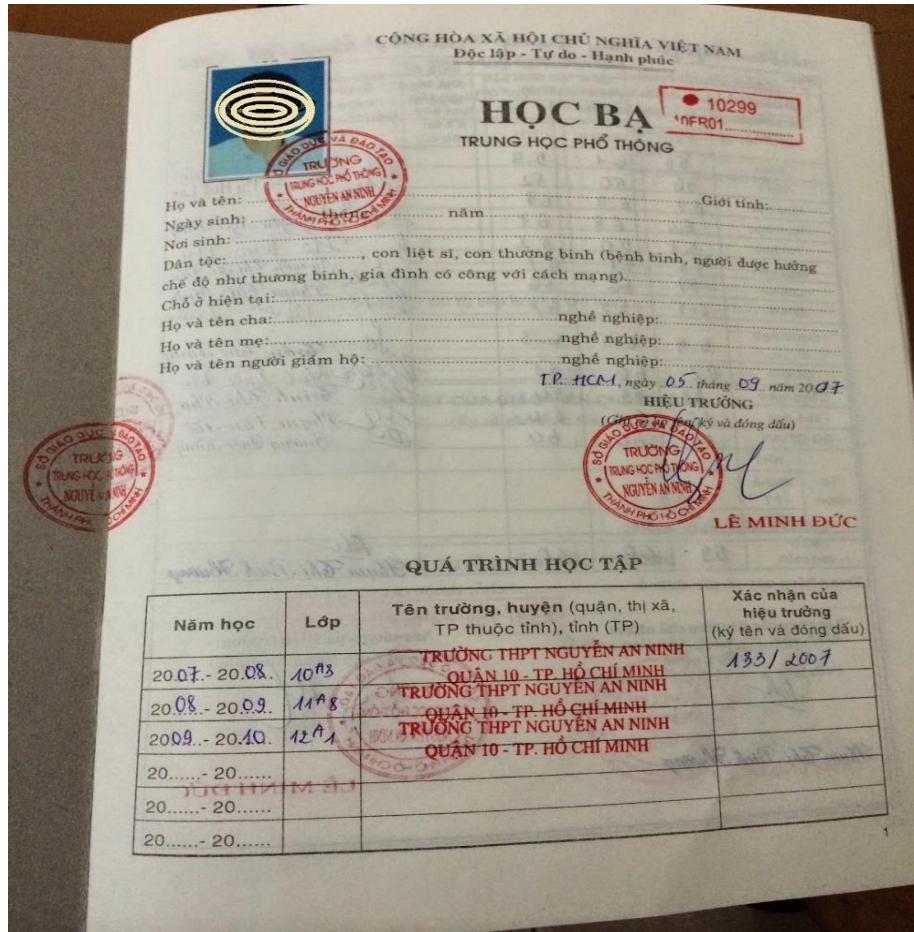 CỘNG HÒA XÃ HỘI CHỦ NGHĨA VIỆT NAM
Độc lập - Tự do - Hạnh phúc
HỌC BẠ
10299
10FR01
TRUNG HỌC PHỔ THÔNG
SỞ GIÁO DỤC VÀ ĐÀO TẠO
TRƯỜNG
TRUNG HỌC PHỔ THÔNG
NGUYỄN AN NINH
THÀNH PHỐ HỒ CHÍ MINH
Họ và tên: Giới tính:
Ngày sinh: tháng năm
Nơi sinh:
Dân tộc:, con liệt sĩ, con thương binh (bệnh binh, người được hưởng
chế độ như thương binh, gia đình có công với cách mạng)
Chỗ ở hiện tại:
Họ và tên cha: nghề nghiệp:
Họ và tên mẹ: nghề nghiệp:
Họ và tên người giám hộ: nghề nghiệp:
T.P. HCM, ngày 05 tháng 09 năm 2007
HIỆU TRƯỞNG
ký và đóng dấu)
SỞ GIÁO DỤC VÀ ĐÀO TẠO
TRƯỜNG
TRUNG HỌC PHỔ THÔNG
NGUYỄN AN NINH
THÀNH PHỐ HỒ CHÍ MINH
SỞ GIÁO DỤC VÀ ĐÀO TẠO
TRƯỜNG
TRUNG HỌC PHỔ THÔNG
NGUYỄN AN NINH
THÀNH PHỐ HỒ CHÍ MINH
LÊ MINH ĐỨC
QUÁ TRÌNH HỌC TẬP
Năm học Lớp Tên trường, huyện (quận, thị xã, TP thuộc tỉnh), tỉnh (TP) Xác nhận của hiệu trưởng (ký tên và đóng dấu)
2007 - 2008 10A3 TRƯỜNG THPT NGUYỄN AN NINH 133/2007
QUẬN 10 - TP. HỒ CHÍ MINH
2008 - 2009 11A8 TRƯỜNG THPT NGUYỄN AN NINH
QUẬN 10 - TP. HỒ CHÍ MINH
2009 - 2010 12A1 TRƯỜNG THPT NGUYỄN AN NINH
QUẬN 10 - TP. HỒ CHÍ MINH
20......- 20......
20......- 20......
20......- 20......
1